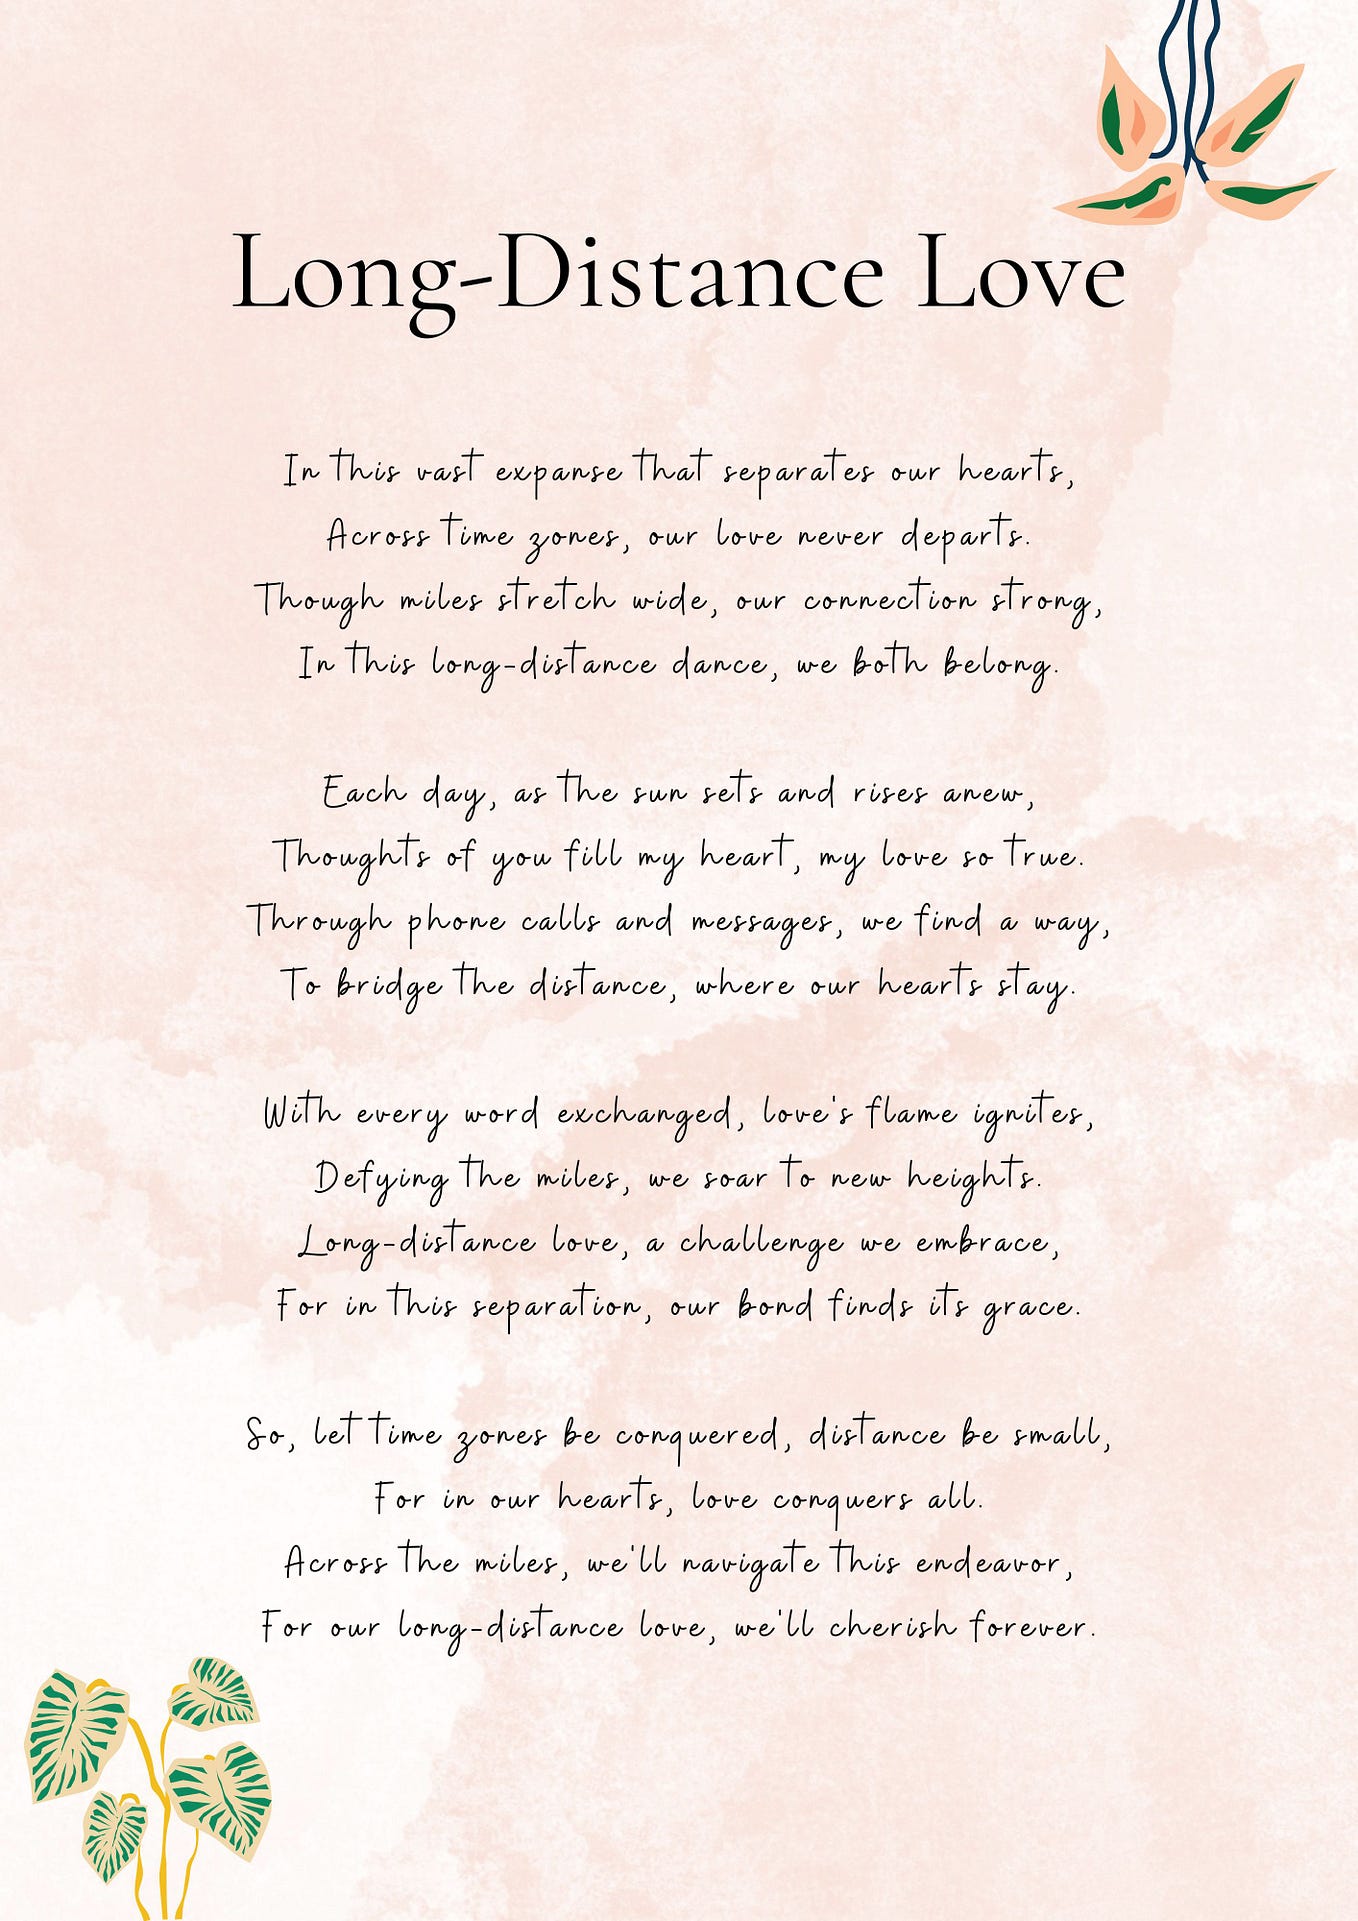 Long-Distance Love
In this vast expanse that separates our hearts,
Across time zones, our love never departs.
Though miles stretch wide, our connection strong,
In this long-distance dance, we both belong.
Each day, as the sun sets and rises anew,
Thoughts of you fill my heart, my love so true.
Through phone calls and messages, we find a way,
To bridge the distance, where our hearts stay.
With every word exchanged, love's flame ignites,
Defying the miles, we soar to new heights.
Long-distance love, a challenge we embrace,
For in this separation, our bond finds its grace.
So, let time zones be conquered, distance be small,
For in our hearts, love conquers all.
Across the miles, we'll navigate this endeavor,
For our long-distance love, we'll cherish forever.